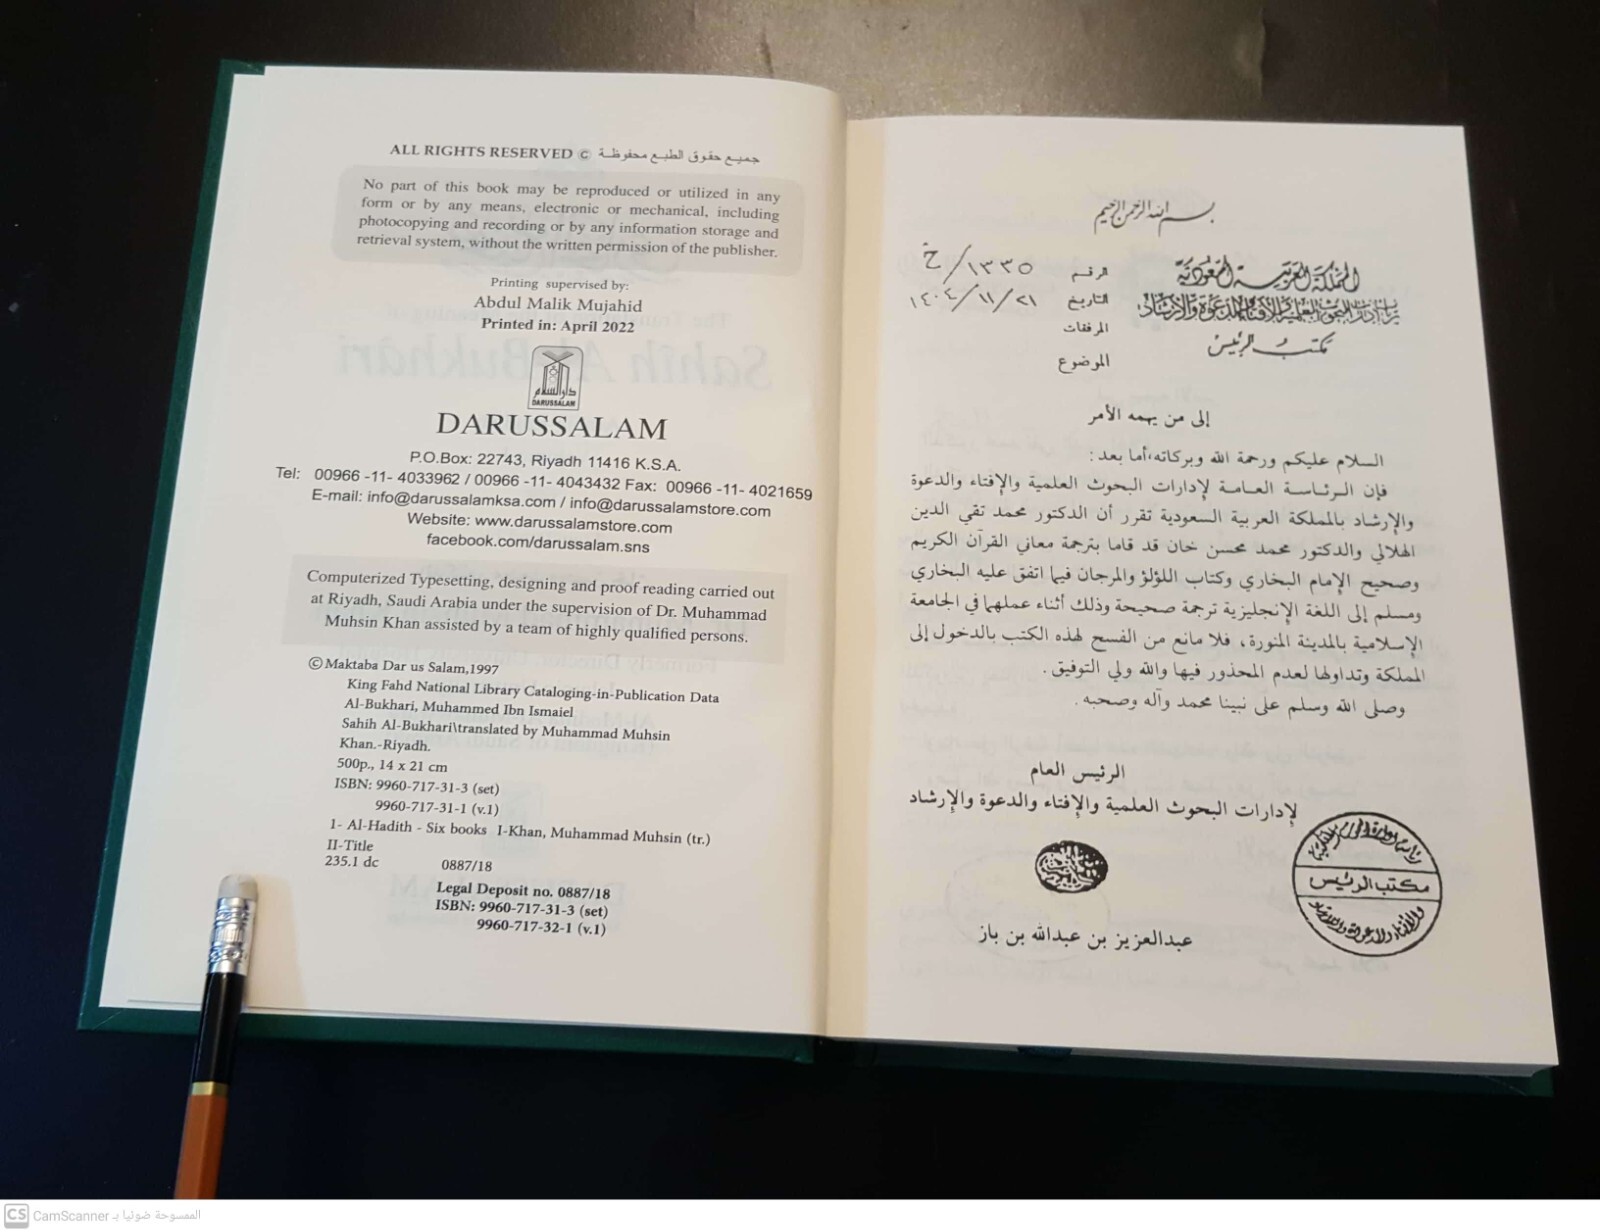 ALL RIGHTS RESERVED © جميع حقوق الطبع محفوظة
No part of this book may be reproduced or utilized in any
form or by any means, electronic or mechanical, including
photocopying and recording or by any information storage and
retrieval system, without the written permission of the publisher.
Printing supervised by:
Abdul Malik Mujahid
Printed in: April 2022
دارالسلام
DARUSSALAM
DARUSSALAM
P.O.Box: 22743, Riyadh 11416 K.S.A.
Tel: 00966 -11- 4033962 / 00966 -11- 4043432 Fax: 00966 -11- 4021659
E-mail: info@darussalamksa.com / info@darussalamstore.com
Website: www.darussalamstore.com
facebook.com/darussalam.sns
Computerized Typesetting, designing and proof reading carried out
at Riyadh, Saudi Arabia under the supervision of Dr. Muhammad
Muhsin Khan assisted by a team of highly qualified persons.
©Maktaba Dar us Salam,1997
King Fahd National Library Cataloging-in-Publication Data
Al-Bukhari, Muhammed Ibn Ismaiel
Sahih Al-Bukhari\translated by Muhammad Muhsin
Khan.-Riyadh.
500p., 14 x 21 cm
ISBN: 9960-717-31-3 (set)
9960-717-31-1 (v.1)
1- Al-Hadith - Six books I-Khan, Muhammad Muhsin (tr.)
II-Title
235.1 dc 0887/18
Legal Deposit no. 0887/18
ISBN: 9960-717-31-3 (set)
9960-717-32-1 (v.1)
بسم الله الرحمن الرحيم
المملكة العربية السعودية
رئاسة إدارات البحوث العلمية والإفتاء والدعوة والإرشاد
مكتب الرئيس
الرقم ١٣٣٥/خ
التاريخ ١٤٠٤/١١/٢١
المرفقات
الموضوع
إلى من يهمه الأمر
السلام عليكم ورحمة الله وبركاته،أما بعد:
فإن الرئاسة العامة لإدارات البحوث العلمية والإفتاء والدعوة
والإرشاد بالمملكة العربية السعودية تقرر أن الدكتور محمد تقي الدين
الهلالي والدكتور محمد محسن خان قد قاما بترجمة معاني القرآن الكريم
وصحيح الإمام البخاري وكتاب اللؤلؤ والمرجان فيما اتفق عليه البخاري
ومسلم إلى اللغة الإنجليزية ترجمة صحيحة وذلك أثناء عملهما في الجامعة
الإسلامية بالمدينة المنورة، فلا مانع من الفسح لهذه الكتب بالدخول إلى
المملكة وتداولها لعدم المحذور فيها والله ولي التوفيق.
وصلى الله وسلم على نبينا محمد وآله وصحبه.
الرئيس العام
لإدارات البحوث العلمية والإفتاء والدعوة والإرشاد
مكتب الرئيس
عبدالعزيز بن عبدالله بن باز
CS CamScanner الممسوحة ضوئيا بـ